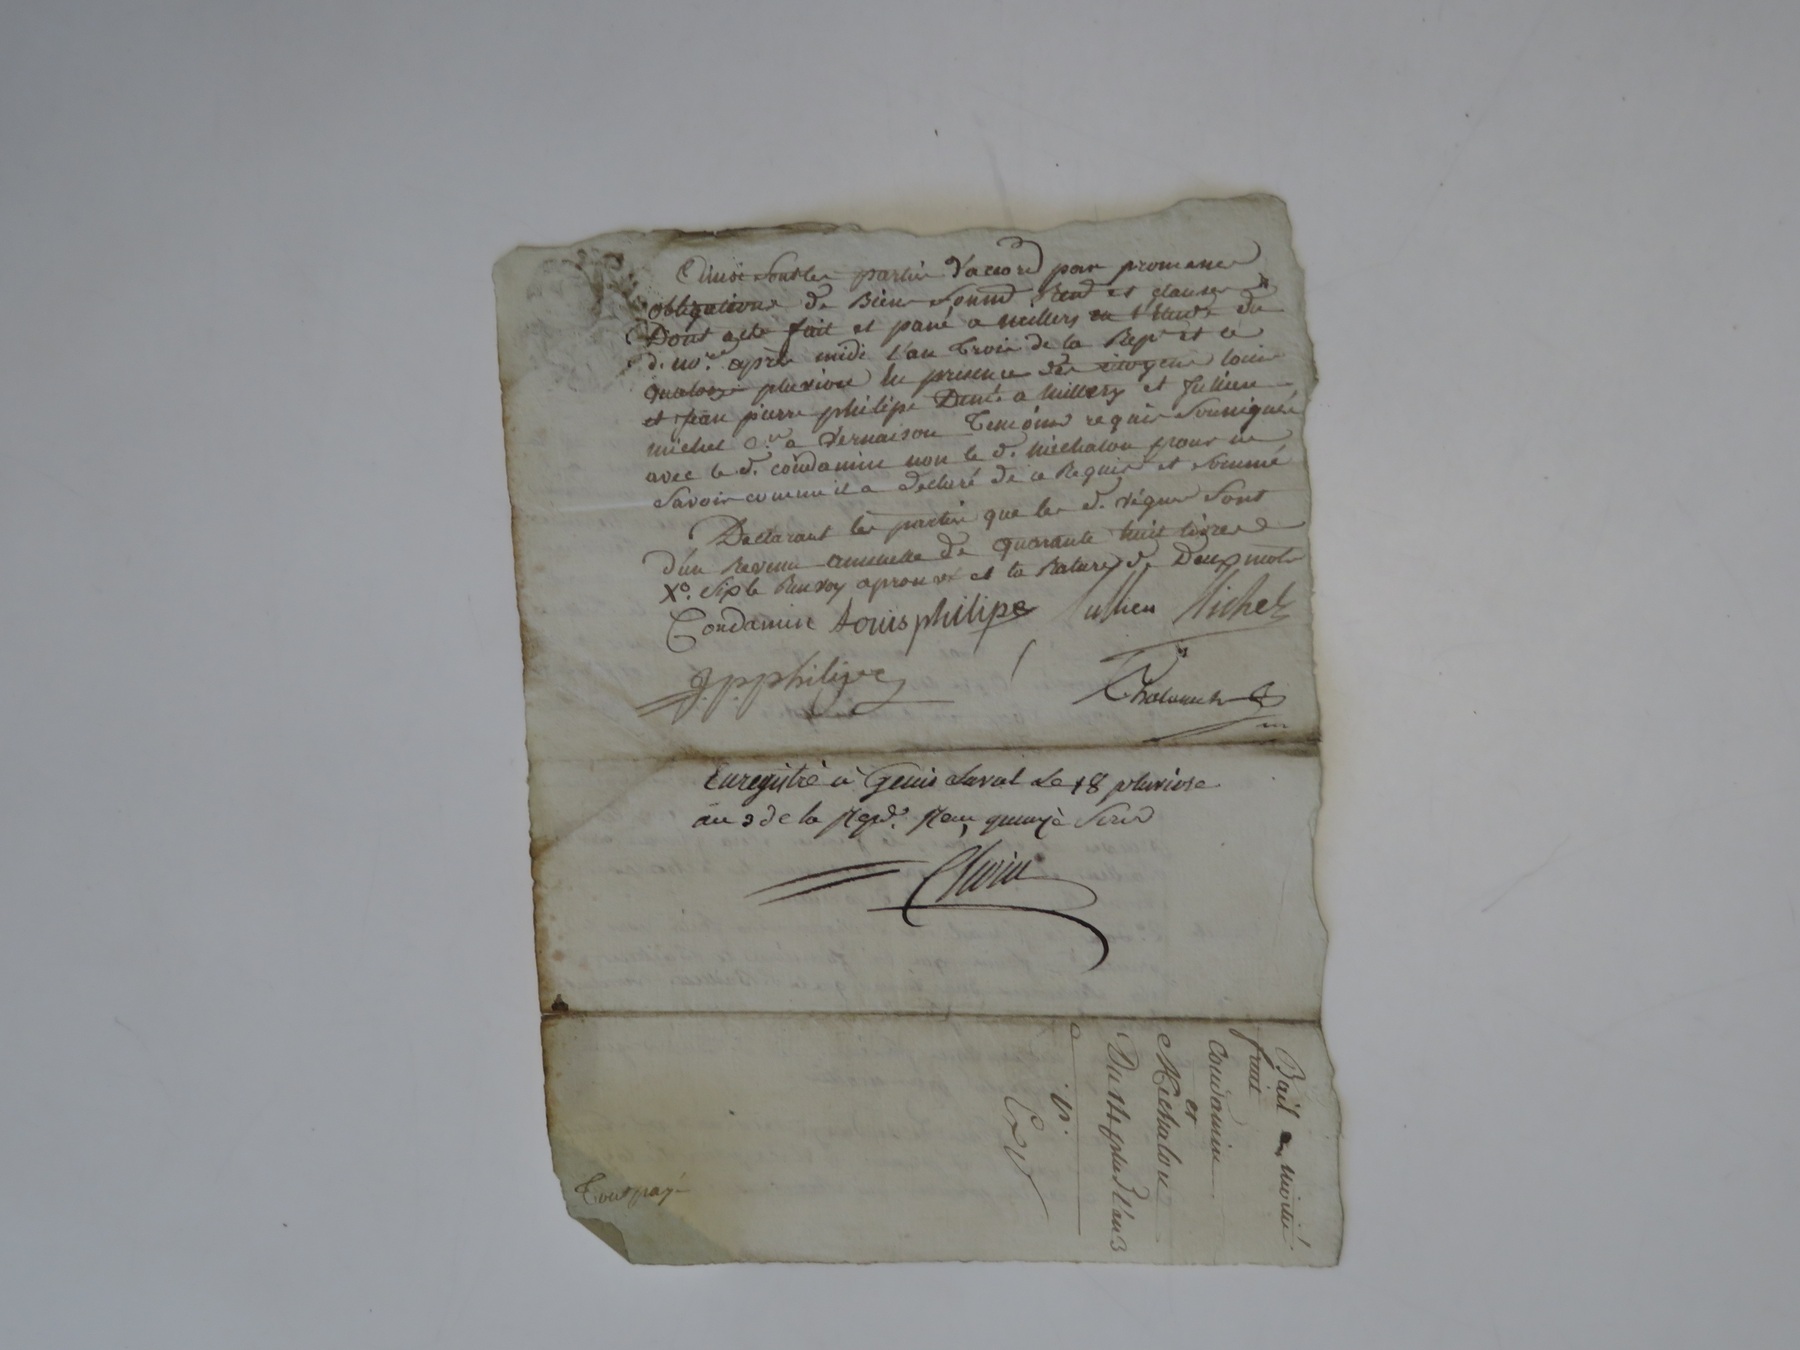 Ainsi sont les parties d'accord par promesses
obligations de Biens Soumis Rend et clauses
Dont acte fait et passé a millery en l'Etude du
d. nore. après midi l'an trois de la Repe. et le
quatorze pluviose En presence des citoyens louis
et jean pierre philipe a millery et Jullien
michel a vernaison temoins requis soussignés
avec le d. condamin non le d. michalon pour ne
savoir comme il a declaré de ce Requis et sommé
Declarant les parties que les d. vignes sont
d'un Revenu annuelle de quarante huit livres
Xo. Six le Renvoy aprouvé et la Rature de Deux mots
Condamin Louis philipe Jullien Michel
J.p. philipe
Enregistré à Genis Laval le 18 pluviose
an 3 de la Repe. Reçu quinze sous
Bail a moitié
fruit
Condamin
et
Michalon
Du 14 pluse l'an 3
Tout payé